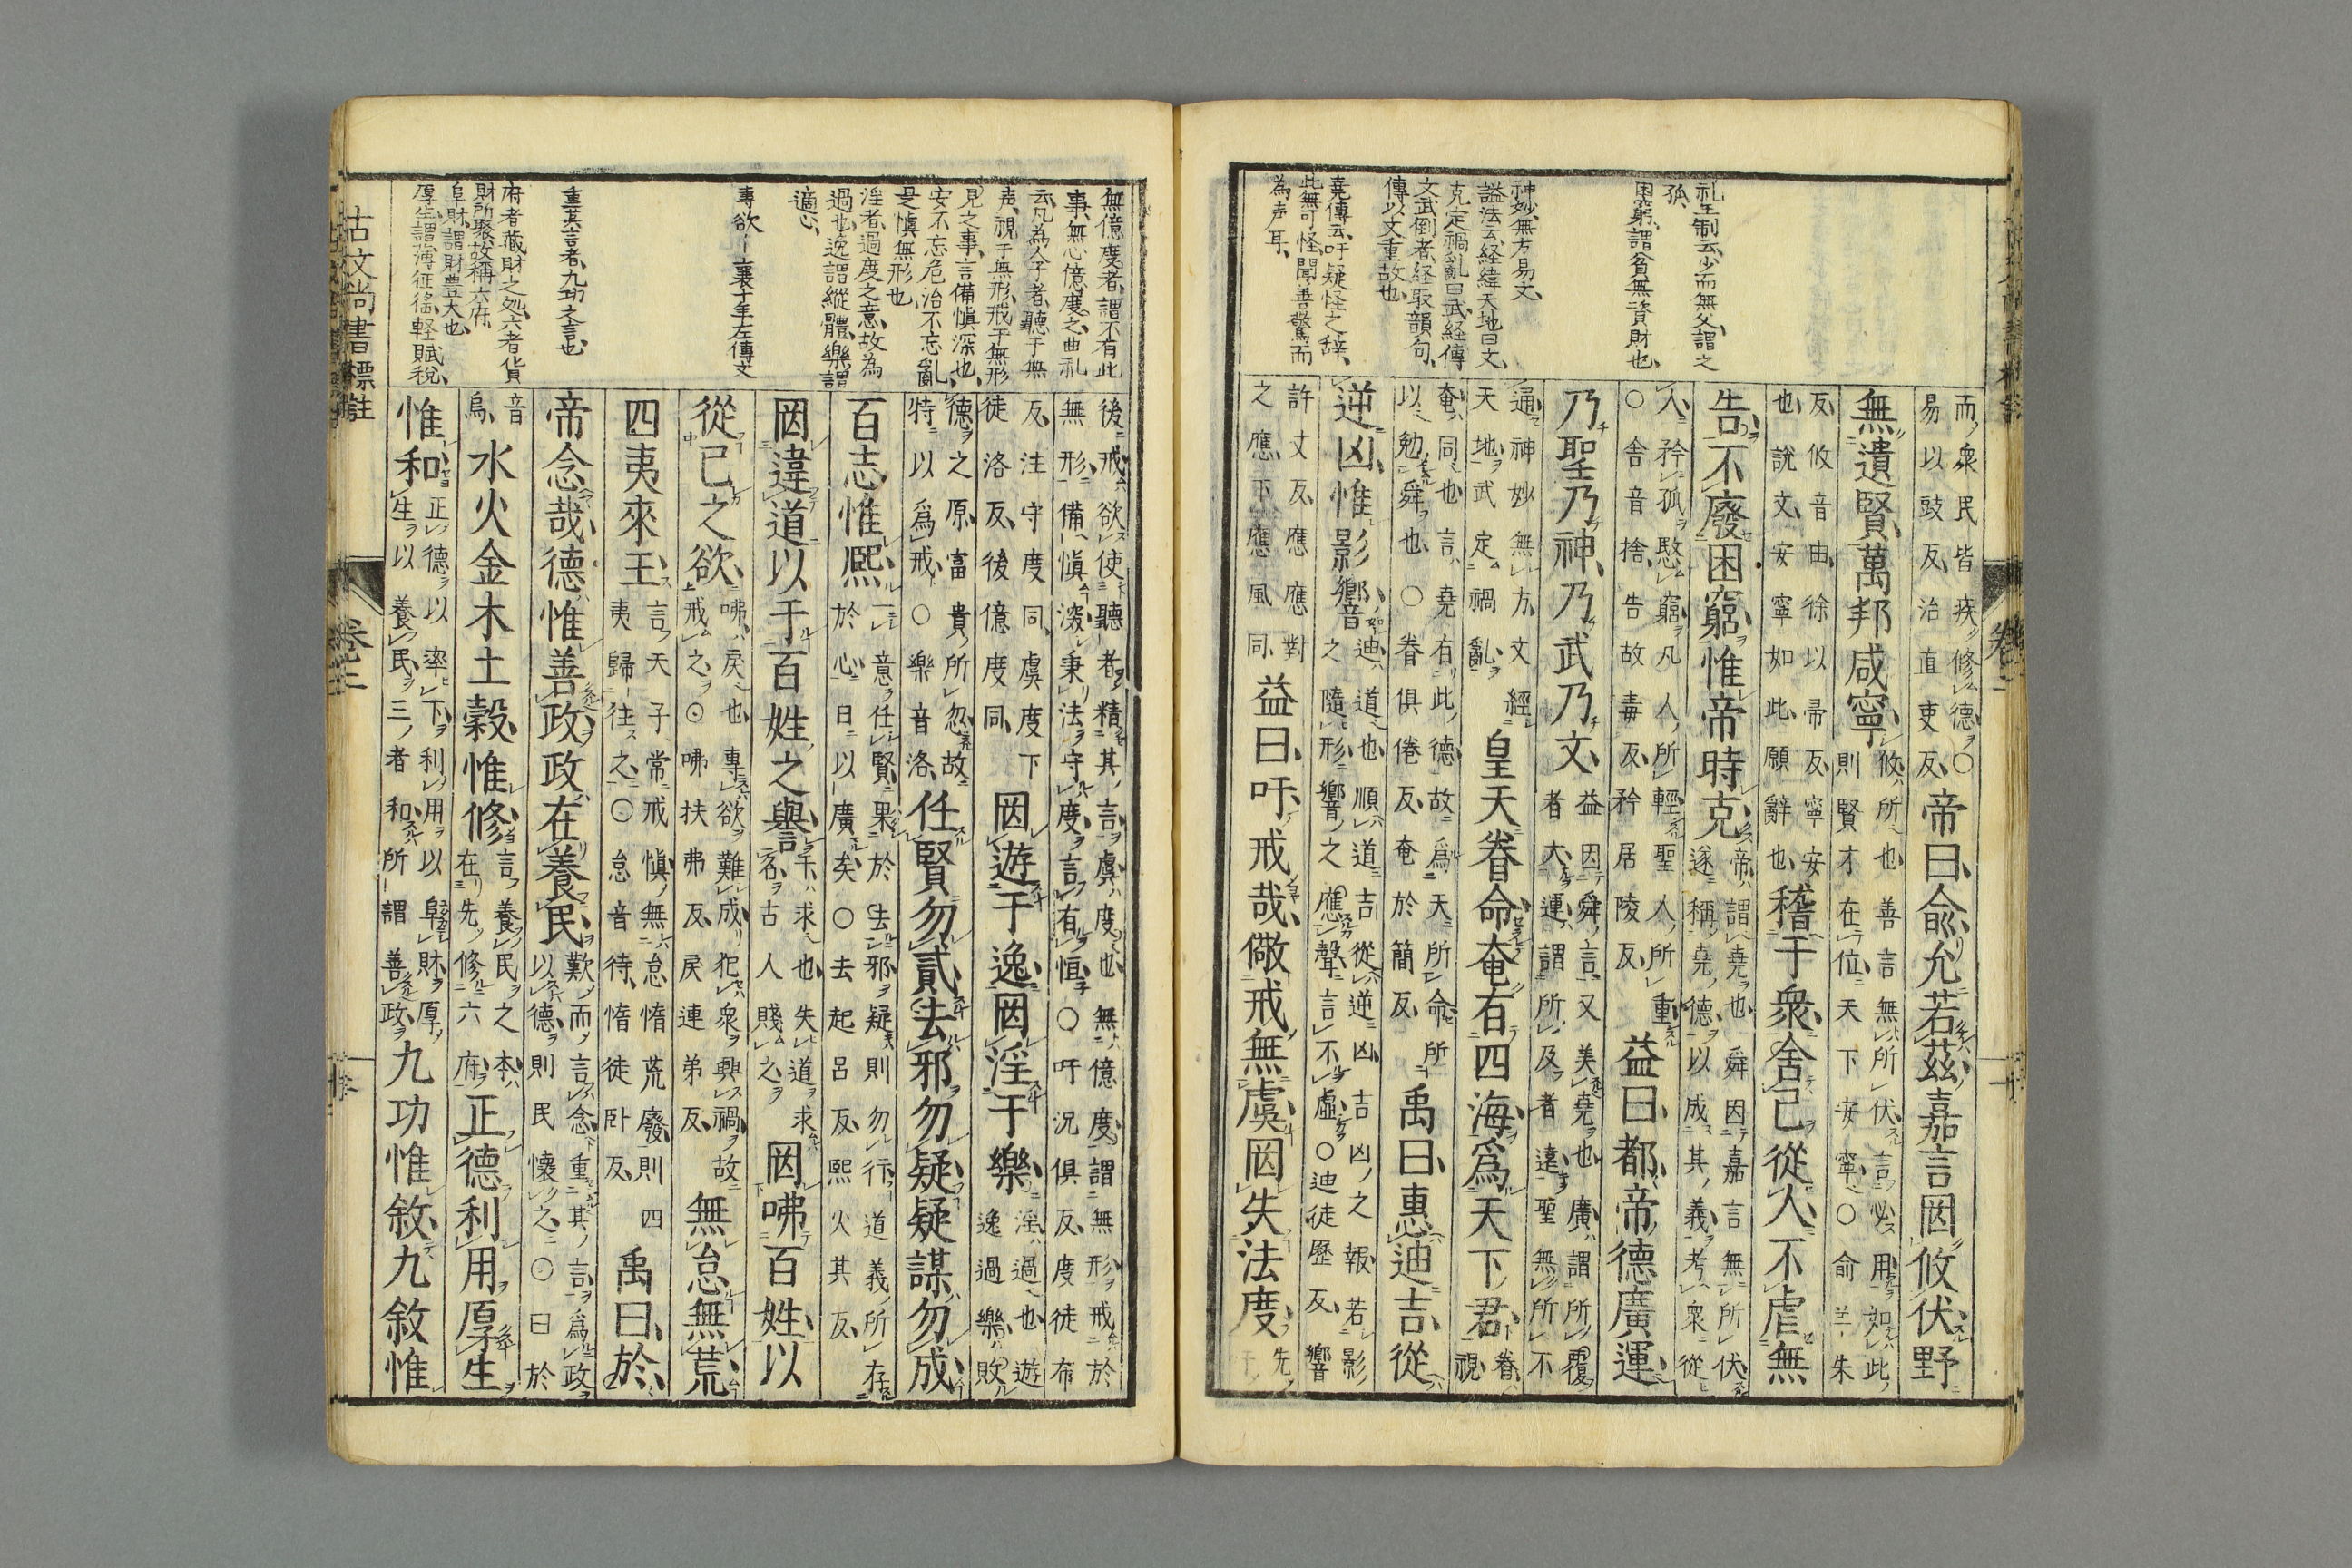 礼王制云少而無父謂之
孤
困窮謂貧無資財也
神妙無方易文
謚法云経緯天地曰文
克定禍亂曰武経傳
文武倒者経取韻句
傳以文重故也
堯傳云吁疑怪之辞
此無可怪聞善驚而
為声耳
而衆民皆疾修德〇
易以豉反治直吏反
帝曰兪允若茲嘉言罔攸伏野
無遺賢萬邦咸寧
攸所也善言無所伏言必用如此
則賢才在位天下安寧〇俞羊朱
反攸音由徐以帚反寧安
也說文安寧如此願辭也
稽于衆舍己從人不虐無
告不廢困窮惟帝時克
帝謂堯也舜因嘉言無所伏
遂稱堯德以成其義考衆從
人矜孤愍窮凡人所輕聖人所重
〇舍音捨告故毒反矜居陵反
益曰都帝德廣運
乃聖乃神乃武乃文
益因舜言又美堯也廣謂所覆
者大運謂所及者遠聖無所不
通神妙無方文經
天地武定禍亂
皇天眷命奄有四海爲天下君
眷視
奄同也言堯有此德故爲天所命所
以勉舜也〇眷俱倦反奄於簡反
禹曰惠迪吉從
逆凶惟影響
迪道也順道吉從逆凶吉凶之報若影
之隨形響之應聲言不虛〇迪徒歷反響
許丈反應應對
之應下應風同
益曰吁戒哉儆戒無虞罔失法度
先
無億度者謂不有此
事無心億度之曲礼
云凡為人子者聽于無
声視于無形戒于無形
見之事言備慎深也
安不忘危治不忘亂
是慎無形也
淫者過度之意故為
過也逸謂縱體樂謂
適心
專欲襄十年左傳文
重其言者九功之言也
府者藏財之処六者貨
財所聚故稱六府
阜財謂財豊大也
厚生謂薄征徭軽賦稅
後戒欲使聽者精其言虞度也無億度謂無形戒於
無形備慎深秉法守度言有恒〇吁況俱反度徒布
反注守度同虞度下
徒洛反後億度同
罔遊于逸罔淫于樂
淫過也遊
逸過樂敗
德之原富貴所忽故
特以爲戒〇樂音洛
任賢勿貳去邪勿疑疑謀勿成
百志惟熙
一意任賢果於去邪疑則勿行道義所存
於心日以廣矣〇去起呂反熙火其反
罔違道以干百姓之譽
干求也失道求
名古人賤之
罔咈百姓以
從己之欲
咈戾也專欲難成犯衆興禍故
戒之〇咈扶弗反戾連弟反
無怠無荒
四夷來王
言天子常戒慎無怠惰荒廢則四
夷歸往之〇怠音待惰徒卧反
禹曰於
帝念哉德惟善政政在養民
歎而言念重其言爲政
以德則民懷之〇曰於
音
烏
水火金木土穀惟修
言養民之本
在先修六府
正德利用厚生
惟和
正德以率下利用以阜財厚
生以養民三者和所謂善政
九功惟敘九敘惟
古文尚書標註
卷二